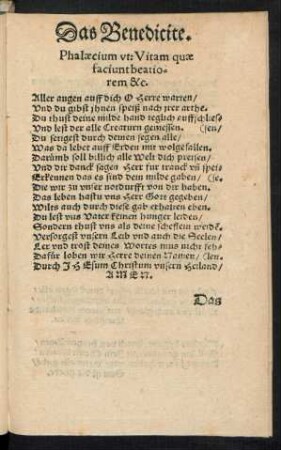 Das Benedicite.
Phalæcium vt: Vitam quæ
faciunt beatio-
rem &c.
Aller augen auff dich O Herre warten/
Vnd du gibst jhnen speiß nach jrer arthe.
Du thust deine milde hand teglich auffschlies/
Vnd lest der alle Creaturn geniessen. (sen/
Du fertigest durch deinen segen alle/
Was da lebet auff Erden mit wolgefallen.
Darümb soll billich alle Welt dich preisen/
Vnd dir danck sagen Herr für tranck vñ speis/
Erkennen das es sind dein milde gaben/ (se.
Die wir zu vnser nordurfft von dir haben.
Das leben hastu vns Herr Gott gegeben/
Wilts auch durch diese gab erhalten eben.
Du lest vns Vater keinen hunger leiden/
Sondern thust vns als deine scheflein weidẽ.
Versorgest vnsern Leib vnd auch die Seelen/
Ler vnd trost deines Wortes mus nicht feh-
Dafür loben wir Herre deinen Namen/ (len.
Durch JHEsum Christum vnsern Heiland/
AMEN.
Das